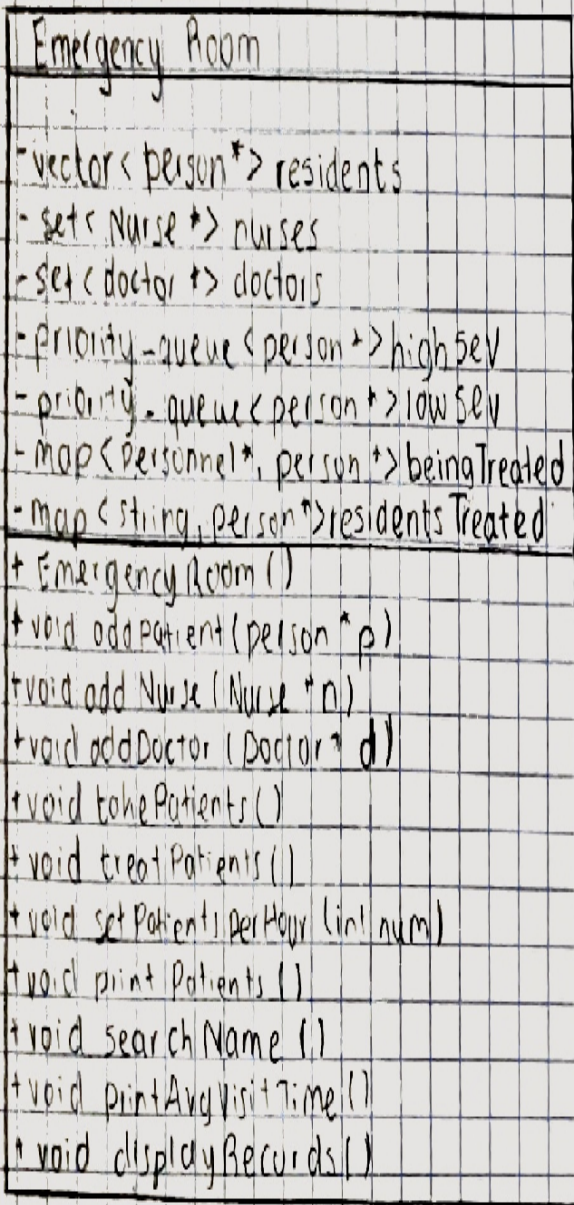 Emergency Room
- vector<person*> residents
- set<Nurse*> nurses
- set<doctor*> doctors
- priority_queue<person*> highSev
- priority_queue<person*> lowSev
- map<Personnel*, person*> beingTreated
- map<string, person*> residentsTreated
+ EmergencyRoom()
+ void addPatient(person *p)
+ void addNurse(Nurse *n)
+ void addDoctor(Doctor* d)
+ void takePatients()
+ void treatPatients()
+ void setPatientsPerHour(int num)
+ void printPatients()
+ void searchName()
+ void printAvgVisitTime()
+ void displayRecords()